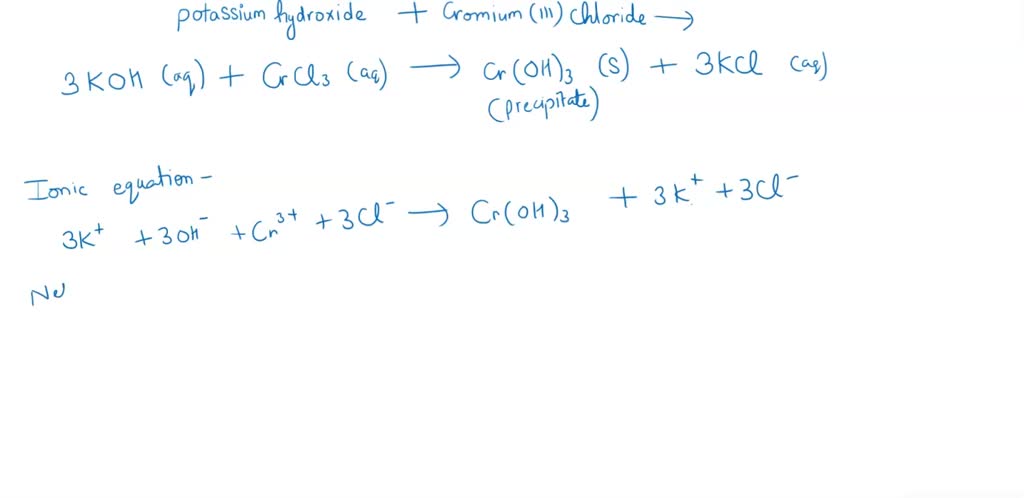 potassium hydroxide + Cromium (III) Chloride →
3KOH (aq) + CrCl3 (aq) → Cr(OH)3 (s) + 3KCl (aq)
(precipitate)
Ionic equation -
3K⁺ + 3OH⁻ + Cr³⁺ + 3Cl⁻ → Cr(OH)3 + 3K⁺ + 3Cl⁻